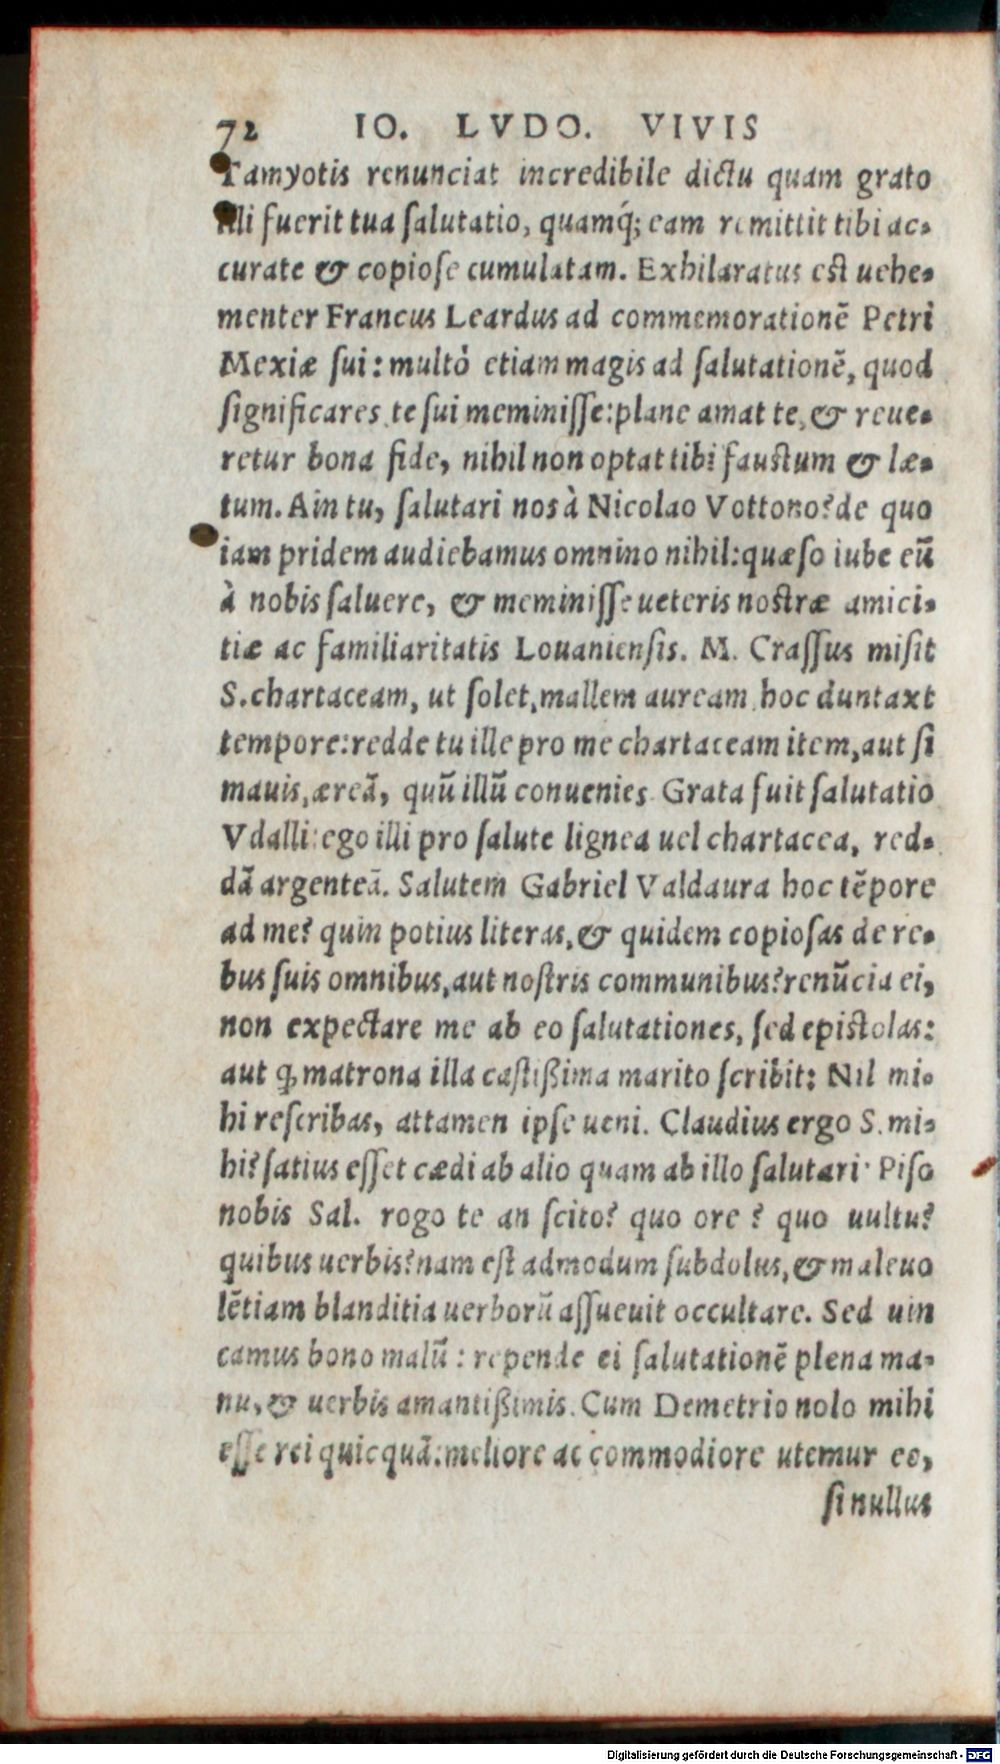 72 IO. LVDO. VIVIS
Tamyotis renunciat incredibile dictu quam grato
illi fuerit tua ſalutatio, quamq́; eam remittit tibi ac-
curate & copioſe cumulatam. Exhilaratus eſt uehe-
menter Francus Leardus ad commemorationē Petri
Mexiæ ſui: multò etiam magis ad ſalutationē, quod
ſignificares te ſui meminiſſe: plane amat te, & reue-
retur bona fide, nihil non optat tibi fauſtum & læ-
tum. Ain tu, ſalutari nos à Nicolao Vottono? de quo
iam pridem audiebamus omnino nihil: quæſo iube eū
à nobis ſaluere, & meminiſſe ueteris noſtræ amici-
tiæ ac familiaritatis Louanienſis. M. Craſſus miſit
S. chartaceam, ut ſolet, mallem auream hoc duntaxt
tempore: redde tu ille pro me chartaceam item, aut ſi
mauis, æreā, quū illū conuenies. Grata fuit ſalutatio
Vdalli: ego illi pro ſalute lignea uel chartacea, red-
dā argenteā. Salutem Gabriel Valdaura hoc tēpore
ad me? quin potius literas, & quidem copioſas de re-
bus ſuis omnibus, aut noſtris communibus? renūcia ei,
non expectare me ab eo ſalutationes, ſed epiſtolas:
aut ꝙ matrona illa caſtißima marito ſcribit: Nil mi-
hi reſcribas, attamen ipſe ueni. Claudius ergo S. mi-
hi? ſatius eſſet cædi ab alio quam ab illo ſalutari. Piſo
nobis Sal. rogo te an ſcito? quo ore? quo uultu?
quibus uerbis? nam eſt admodum ſubdolus, & maleuo
lētiam blanditia uerborū aſſueuit occultare. Sed uin
camus bono malū: repende ei ſalutationē plena ma-
nu, & uerbis amantißimis. Cum Demetrio nolo mihi
eſſe rei quicquā: meliore ac commodiore utemur eo,
ſi nullus
Digitalisierung gefördert durch die Deutsche Forschungsgemeinschaft - DFG